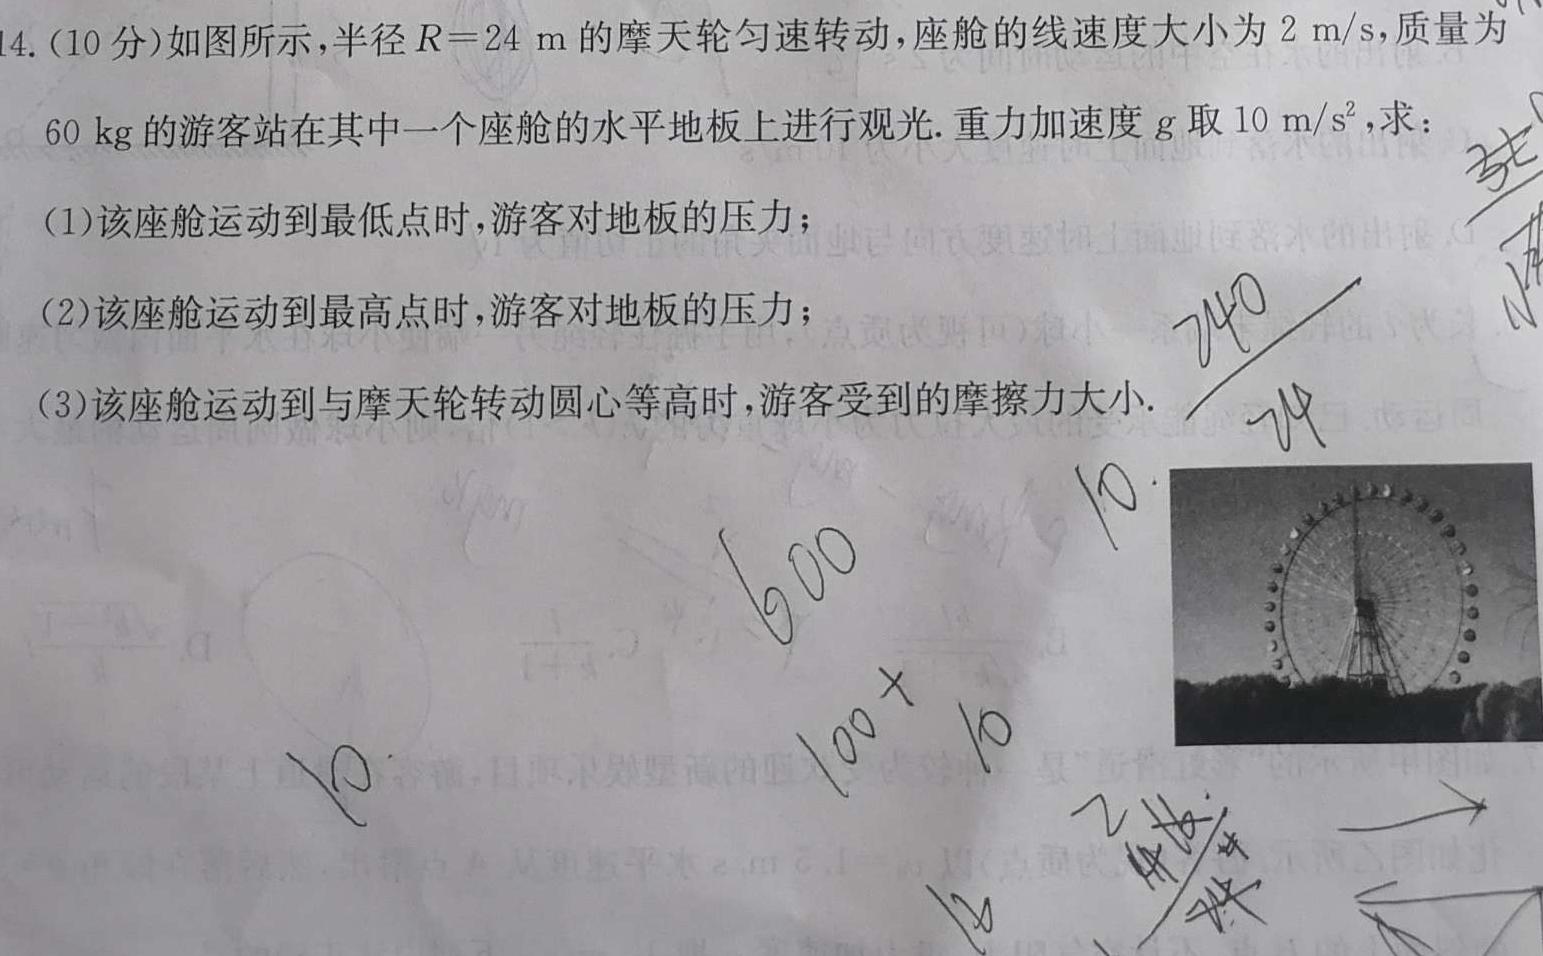 14. (10 分)如图所示,半径 R=24 m 的摩天轮匀速转动,座舱的线速度大小为 2 m/s,质量为
60 kg 的游客站在其中一个座舱的水平地板上进行观光. 重力加速度 g 取 10 m/s²,求:
(1)该座舱运动到最低点时,游客对地板的压力;
(2)该座舱运动到最高点时,游客对地板的压力;
(3)该座舱运动到与摩天轮转动圆心等高时,游客受到的摩擦力大小.
240
24
10.
600
100+
10
10.